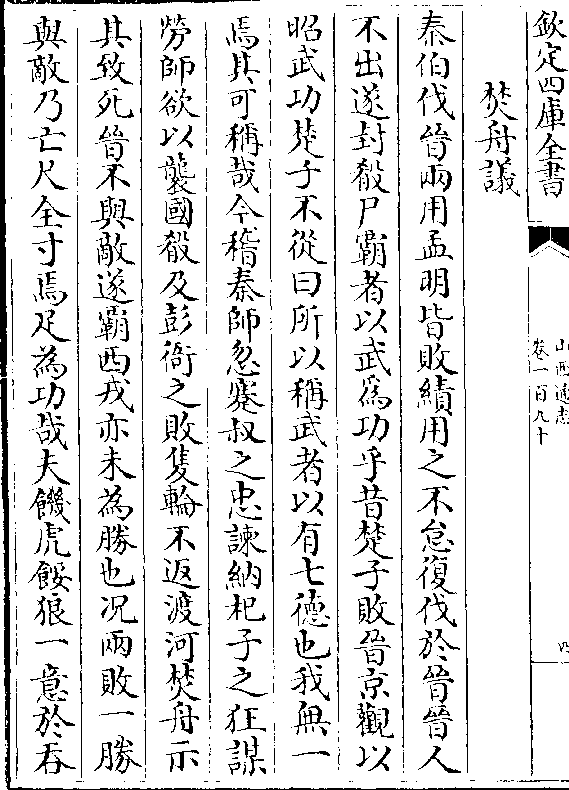 欽定四庫全書
山西通志
卷一百九十
四
焚舟議
秦伯伐晉兩用孟明皆敗績用之不怠復伐於晉晉人
不出遂封殽尸霸者以武為功乎昔楚子敗晉京觀以
昭武功楚子不從曰所以稱武者以有七德也我無一
焉其可稱哉今稽秦師忽蹇叔之忠諫納杞子之狂謀
勞師欲以襲國殽及彭衙之敗隻輪不返渡河焚舟示
其致死晉不與敵遂霸西戎亦未為勝也况兩敗一勝
與敵乃亡尺全寸焉足為功哉夫饑虎餒狼一意於吞